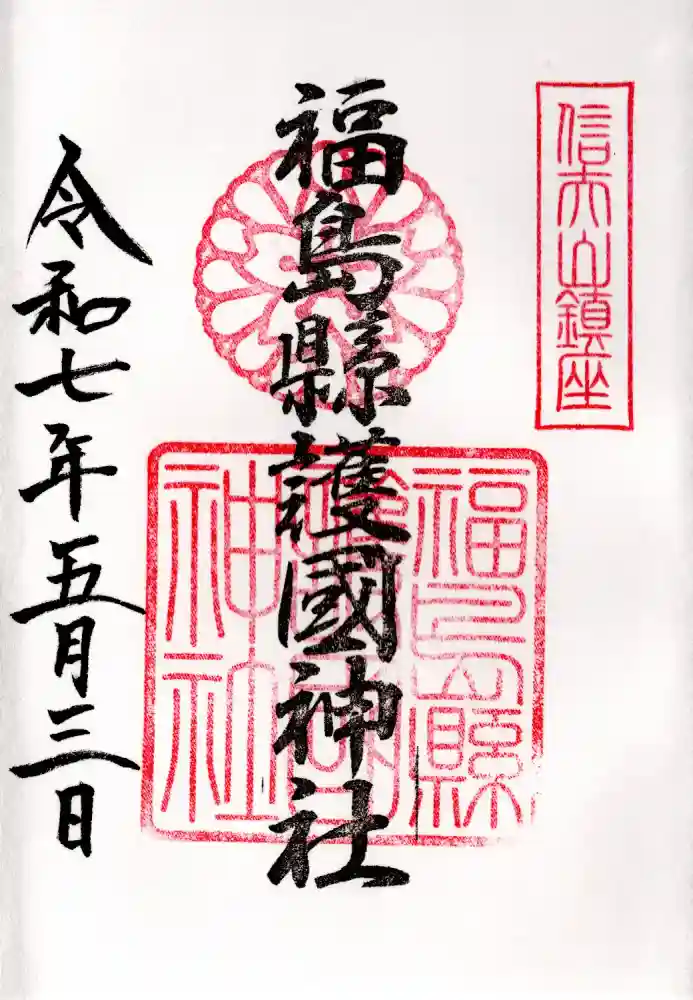 信夫山鎮座
福島縣護國神社
福島縣
護國
神社
令和七年五月三日